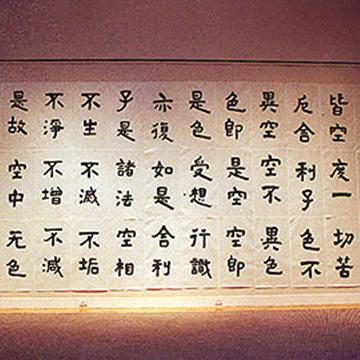 皆空度一切苦
厄舍利子色不
異空空不異色
色即是空空即
是色受想行識
亦復如是舍利
子是諸法空相
不生不滅不垢
不淨不增不減
是故空中无色